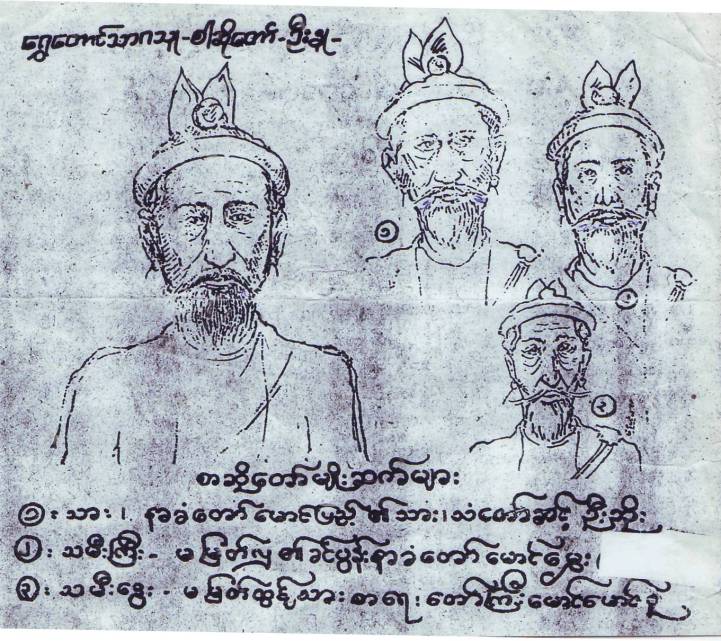 ရွှေတောင်သာဂသူ-စါဆိုတော်-ဦးနု-
၁
၁
၂
၃
စာဆိုတော်မျိုးဆက်များ
၁: သား၊. နာခံတော်မောင်ဖြည့် ၏ သား၊ သံတော်ဆင့် ဦးဘိုး
၂: သမီးကြီး- မမြတ်လှ ၏ ခင်ပွန်း နာခံတော် မောင်ရွှေး (
၃: သမီးထွေး - မမြတ်ထွန့် သား စာရေးတော်ကြီး မောင်မောင်